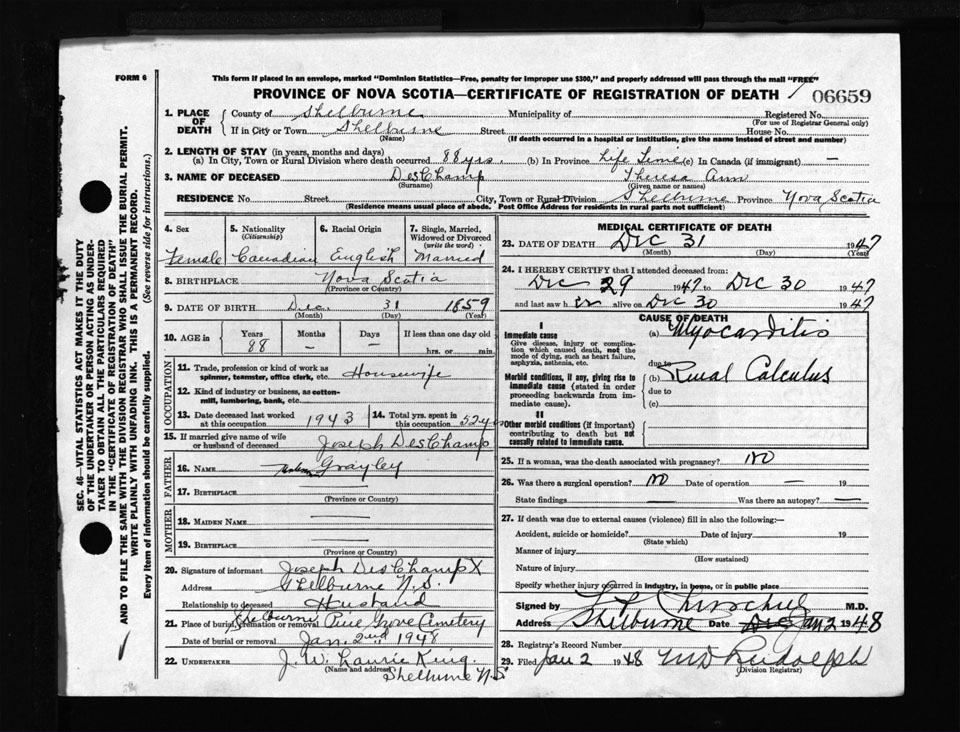 FORM 6
This form if placed in an envelope, marked "Dominion Statistics—Free, penalty for improper use $300," and properly addressed will pass through the mail "FREE"
PROVINCE OF NOVA SCOTIA—CERTIFICATE OF REGISTRATION OF DEATH
06659
SEC. 46—VITAL STATISTICS ACT MAKES IT THE DUTY
OF THE UNDERTAKER OR PERSON ACTING AS UNDER-
TAKER TO OBTAIN ALL THE PARTICULARS REQUIRED
IN THE "CERTIFICATE OF REGISTRATION OF DEATH"
AND TO FILE THE SAME WITH THE DIVISION REGISTRAR WHO SHALL ISSUE THE BURIAL PERMIT.
WRITE PLAINLY WITH UNFADING INK. THIS IS A PERMANENT RECORD.
Every item of information should be carefully supplied. (See reverse side for instructions.)
1. PLACE OF DEATH
County of Shelburne Municipality of Registered No.
(For use of Registrar General only)
If in City or Town Shelburne Street House No.
(Name) (If death occurred in a hospital or institution, give the name instead of street and number)
2. LENGTH OF STAY (in years, months and days)
(a) In City, Town or Rural Division where death occurred 88 yrs. (b) In Province Life Time (c) In Canada (if immigrant) —
3. NAME OF DECEASED DesChamp Theresa Ann
(Surname) (Given name or names)
RESIDENCE No. Street City, Town or Rural Division Shelburne Province Nova Scotia
(Residence means usual place of abode. Post Office Address for residents in rural parts not sufficient)
4. Sex 5. Nationality (Citizenship) 6. Racial Origin 7. Single, Married, Widowed or Divorced (write the word)
Female Canadian English Married
8. BIRTHPLACE Nova Scotia
(Province or Country)
9. DATE OF BIRTH Dec. 31 1859
(Month) (Day) (Year)
10. AGE in Years Months Days If less than one day old
88 — — hrs. or min.
OCCUPATION
11. Trade, profession or kind of work as spinner, teamster, office clerk, etc. Housewife
12. Kind of industry or business, as cotton-mill, lumbering, bank, etc.
13. Date deceased last worked at this occupation 1943 14. Total yrs. spent in this occupation 52 yrs
15. If married give name of wife or husband of deceased Joseph DesChamp
FATHER
16. NAME Grayley
17. BIRTHPLACE —
(Province or Country)
MOTHER
18. MAIDEN NAME —
19. BIRTHPLACE —
(Province or Country)
20. Signature of informant Joseph DesChamp X
Address Shelburne N.S.
Relationship to deceased Husband
21. Place of burial, cremation or removal Shelburne Pine Grove Cemetery
Date of burial Jan. 2nd 1948
22. UNDERTAKER J. W. Laurie King
(Name and address) Shelburne N.S.
MEDICAL CERTIFICATE OF DEATH
23. DATE OF DEATH Dec 31 1947
(Month) (Day) (Year)
24. I HEREBY CERTIFY that I attended deceased from:
Dec 29 1947 to Dec 30 1947
and last saw her alive on Dec 30 1947
CAUSE OF DEATH
I
Immediate cause
Give disease, injury or complication which caused death, not the mode of dying, such as heart failure, asphyxia, asthenia, etc.
(a) Myocarditis
due to
Morbid conditions, if any, giving rise to immediate cause (stated in order proceeding backwards from immediate cause).
(b) Renal Calculus
due to
(c)
II
Other morbid conditions (if important) contributing to death but not causally related to immediate cause.
25. If a woman, was the death associated with pregnancy? NO
26. Was there a surgical operation? NO Date of operation — 19
State findings Was there an autopsy? —
27. If death was due to external causes (violence) fill in also the following:—
Accident, suicide or homicide? Date of injury 19
(State which)
Manner of injury
(How sustained)
Nature of injury
Specify whether injury occurred in industry, in home, or in public place
Signed by M.D.
Address Shelburne Date Dec Jan 2 1948
28. Registrar's Record Number
29. Filed Jan 2 1948 MD Rudolph
(Division Registrar)